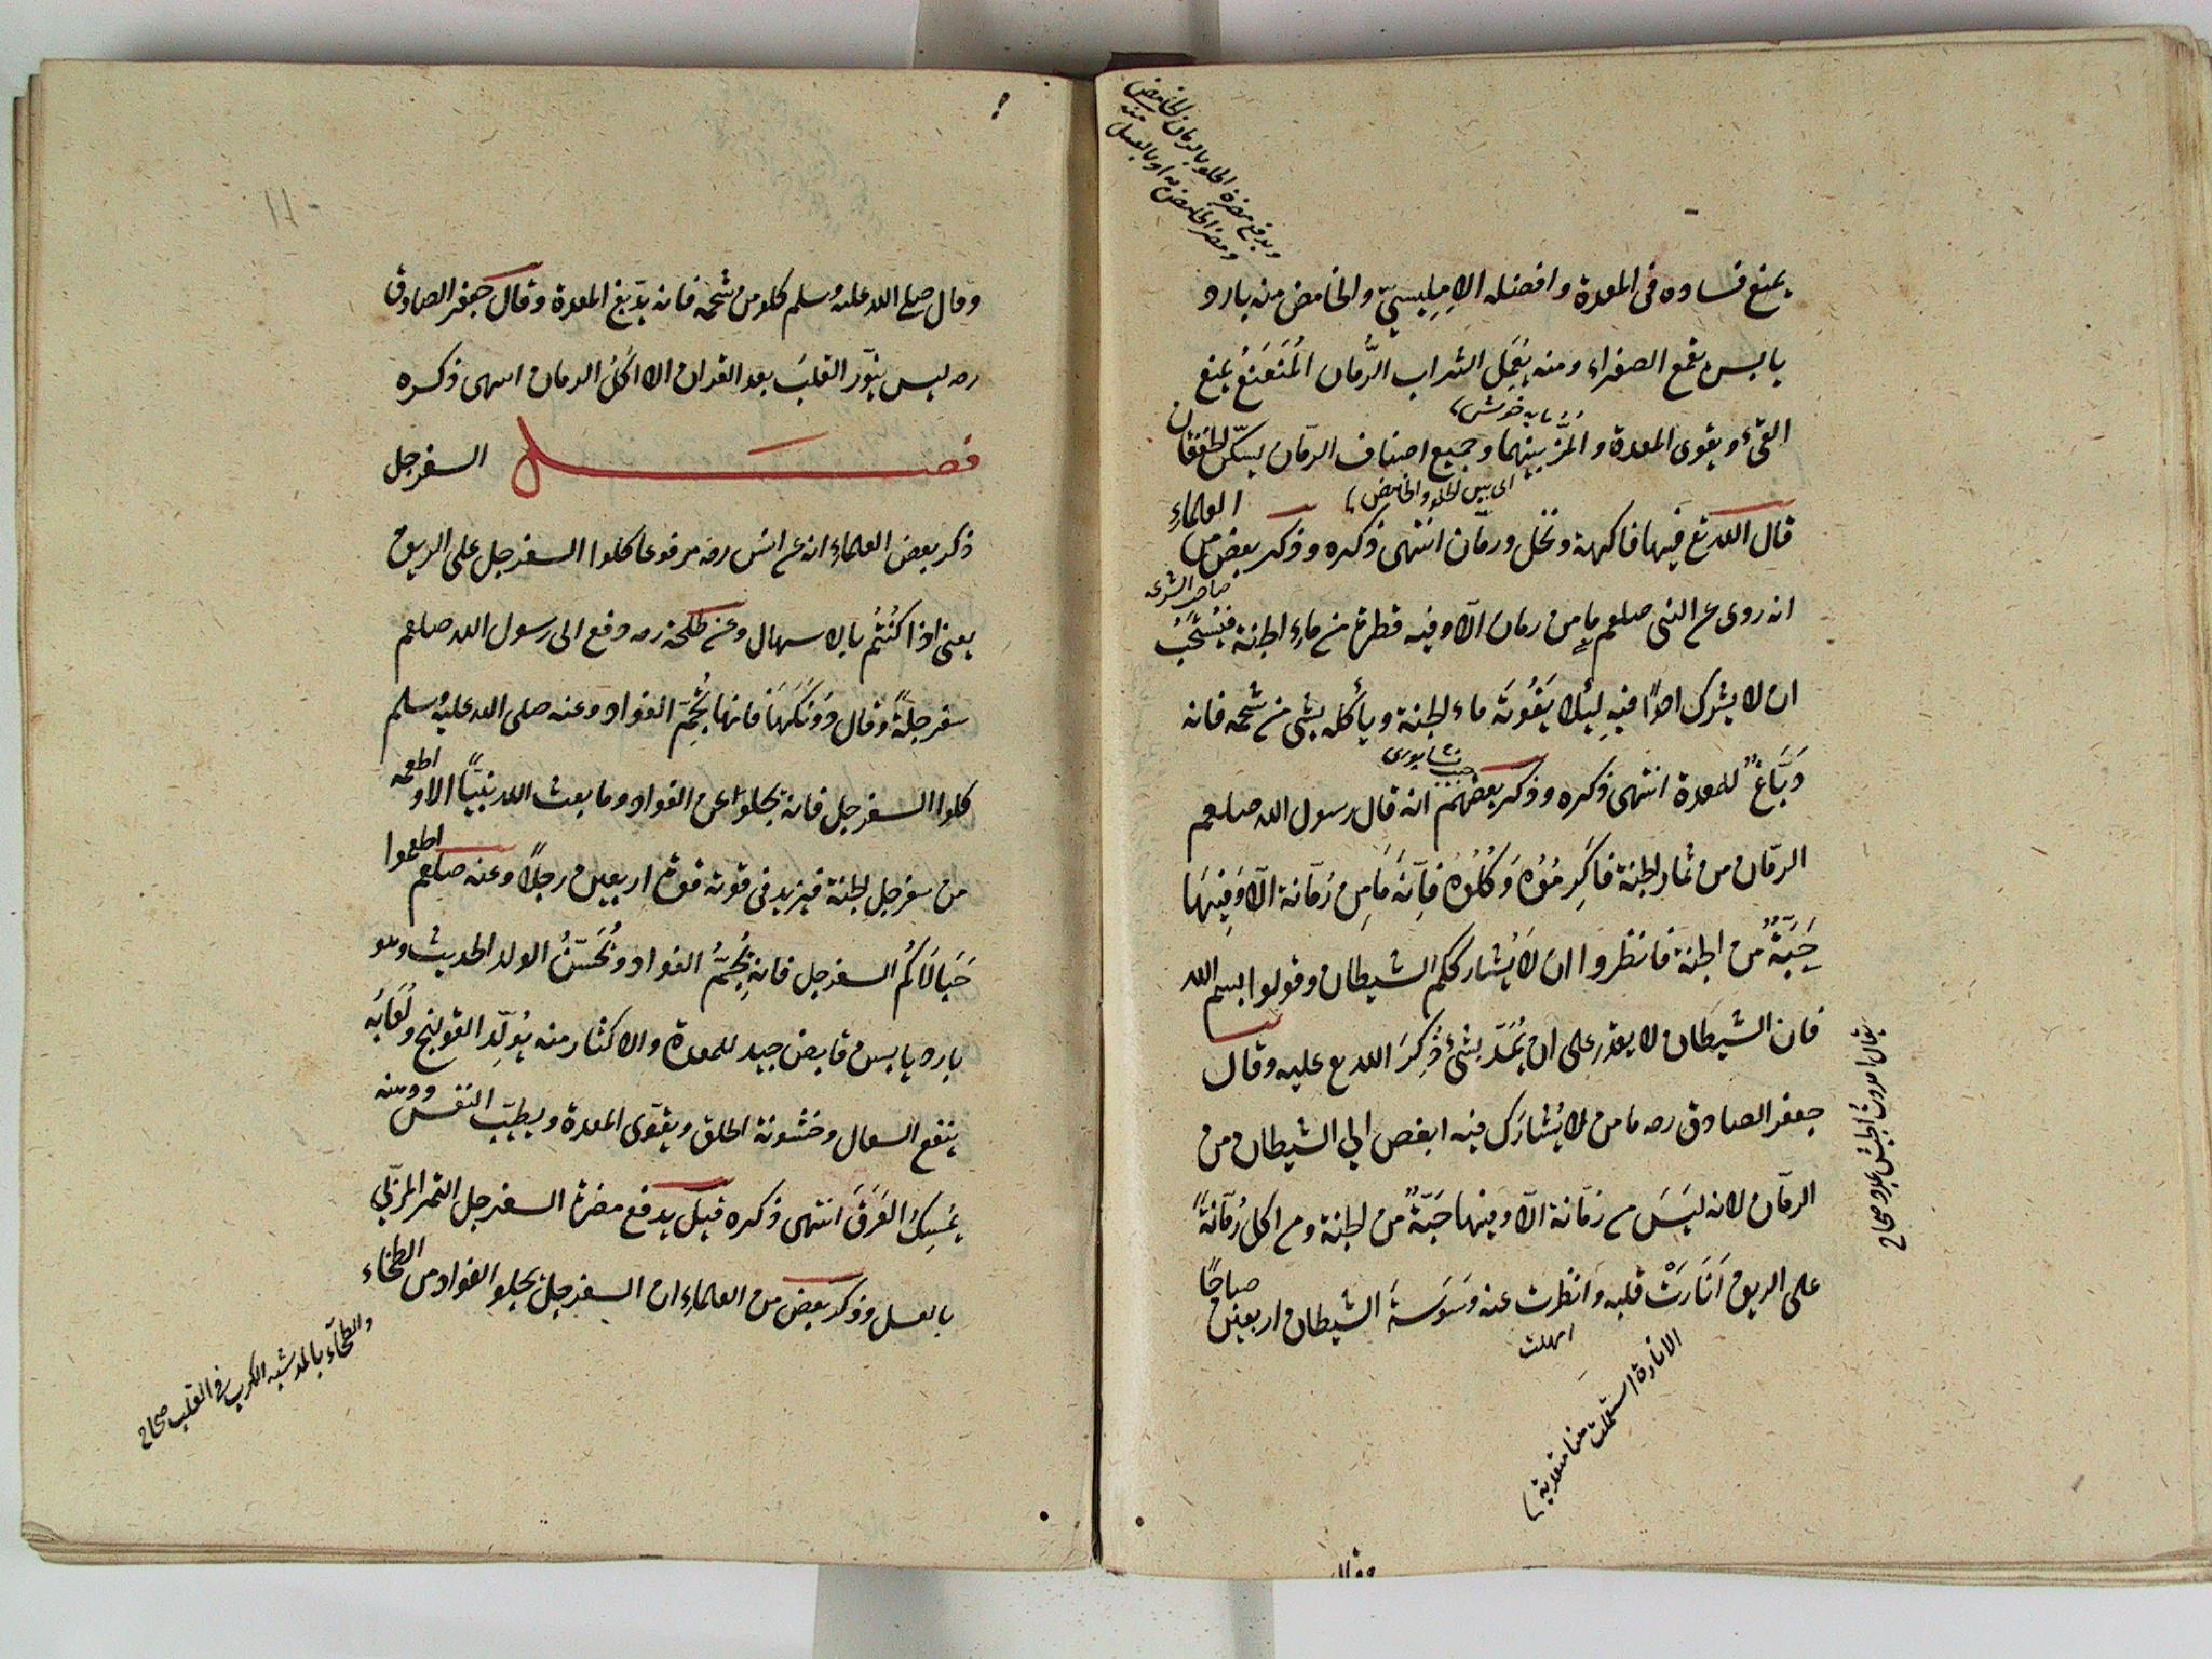 يمنع فساده فى المعدة وافضله الامليسىّ والحامض منه بارد
يابس يقمع الصفراء ومنه يُعْمَل الشراب الرُّمان المُنَعنَعُ يمنع
مايه خوش
القىء ويقوى المعدة والمُزّ بينهما وجميع اصناف الرمّان يسكّن الخفقان
اى بين الحلو والحامض
قال الله تع فيها فاكهة ونخل ورمّان انتهى ذكره وذكر بعض من العلماء
صاحب الشرعه
انه روى ع النبى صلعم ما من رمان الّا وفيه قطرة من ماء الجنة فيُسْتَحَبُّ
ان لا يشرك احدًا فيهِ لِئلا يَفُوتَه ماء الجنة ويأكله بشئ من شحمه فانه
نيسابورى
دَبَّاغٌ للمعدة انتهى ذكره وذكر بعضهم انه قال رسول الله صلعم
الرمّان من ثمار الجنة فاكرِمُوُه وَكُلُوُه فاِنّه مَا مِن رُمّانة الّا وَفِيهَا
حَبَّةٌ من الجنة فانظروا ان لا يُشارككم الشيطان وقولوا بسم الله
فان الشيطان لا يقدر على ان يُمَدّ بشئ ذُكِرَ الله تع عليه وقال
جعفر الصادق رحه ما من لا يُشارَك فيه ابغض الي الشيطان من
الرمّان لانه ليَسَ من رُمّانة الّا وفيها حَبّةٌ من الجنة ومن اكل رُمّانةً
على الريق اَنَارَتْ قلبه وانظرت عنه وَسْوَسَةَ الشيطان اربعين صباحًا
امهلت
الانارة استعملت هنا متعدية
وقال
وقال صلى الله عليه وسلم كلو من شحمه فانه يدّبغ المعدة وقال جعفر الصادق
رحه ليس ينوّر القلبَ بعد القران الا اكلُ الرمان انتهى ذكره
فصل السفرجل
ذكر بعض العلماء انه عن انس رضه مرفوعا كلوا السفرجل على الريق
يعنى اذا كُنتُم بالاسهال وعن طلحة رضه دفع الى رسول الله صلعم
سفرجلةً وقال دُونَكَهَا فانها تُجِمّ الفواد وعنه صلى الله عليه وسلم
كلوا السفرجل فانه يجلوا عن الفواد وما بعث الله نبيًّا الا واطعمه
من سفرجل الجنة فيزيد فى قوته قوة اربعين رجلًا وعنه صلعم اطعموا
حَبَالَاكُم السفرجل فانه يُجِمُّ الفواد ويُحَسّنُ الولد الحديث وهو
بارد يابس قابض جيد للمعدة والاكثار منه يُولّد القولنج ولُعَابُه
ينفع السعال وخشونة الحلق ويقوّى المعدة ويطيّب النفس ودهنه
يَمْسِكُ العَرَقَ انتهى ذكره قيل يدفع مضرة السفرجل التمر المربّى
بالعسل وذكر بعض من العلماء ان السفرجل يجلو الفواد من الطخاء
والطخآء بالمد شبه الكرب فى القلب صحاح